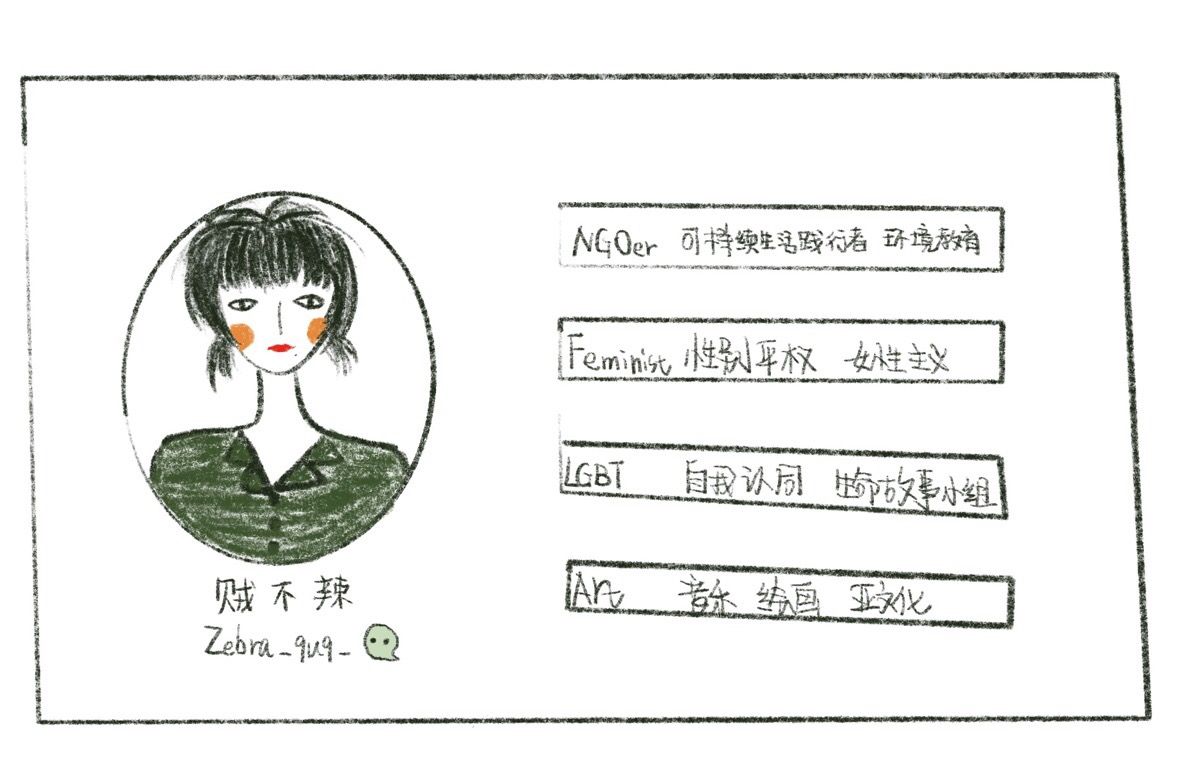 贼不辣
Zebra_quq_
NGOer 可持续生活践行者 环境教育
Feminist 性别平权 女性主义
LGBT 自我认同 生命故事小组
Art 音乐 绘画 亚文化